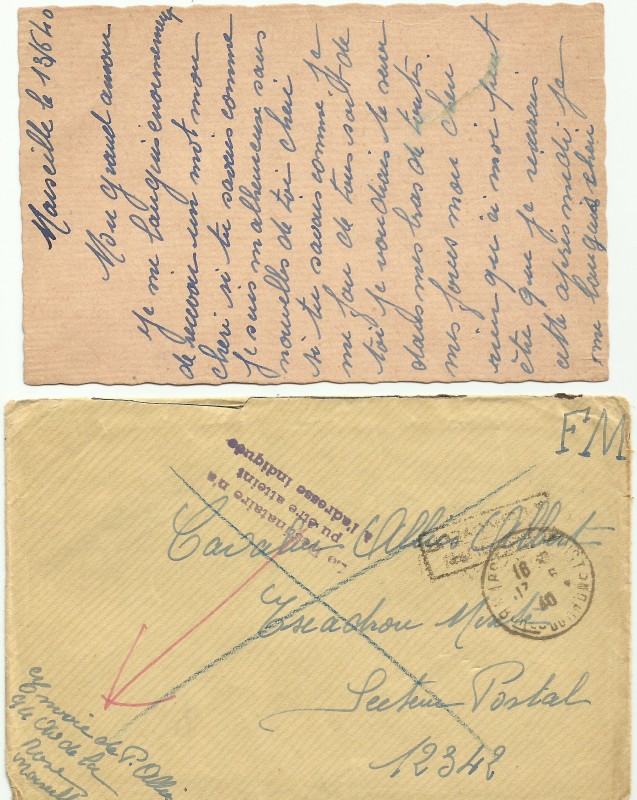 Marseille le 13 6 40
Mon grand amour
Je me languis enormement
de recevoir un mot mon
cheri si tu savais comme
je suis malheureuse sans
nouvelles de toi cheri
si tu savais comme je
me fou de tous sauf de
toi je voudrais te serrer
dans mes bras de toutes
mes forces mon cheri
rien qu'a moi peut
être que je recevrais
cette apres midi je
me languis cheri
FM
Le destinataire n'a
pu être atteint
à l'adresse indiquée
Cavalier Albert
Escadron
Secteur Postal
12342
18
40
Envoie de P.
de la
Rose